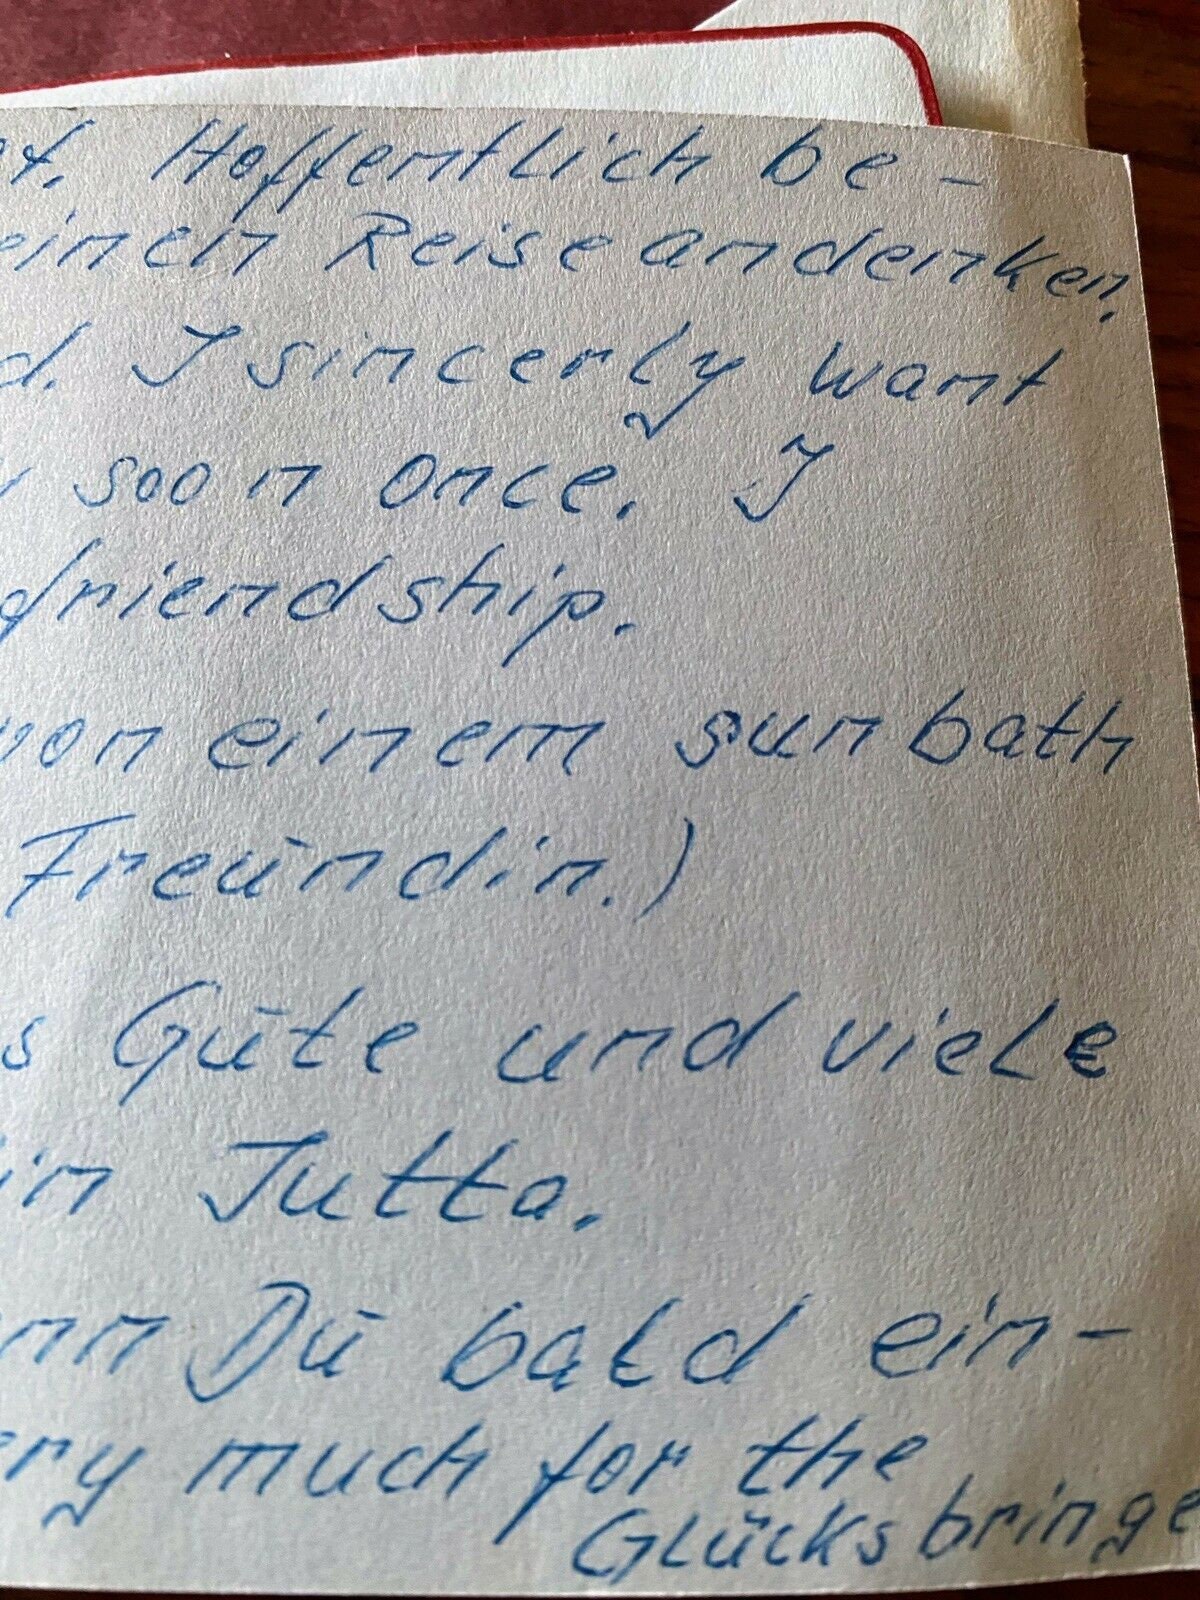 Hoffentlich be-
einen Reiseandenken.
d. I sincerly want
soon once. I
friendship.
von einem sunbath
Freundin.)
s Gute und viele
in Jutta.
nn Du bald ein-
ery much for the
Glücksbringe